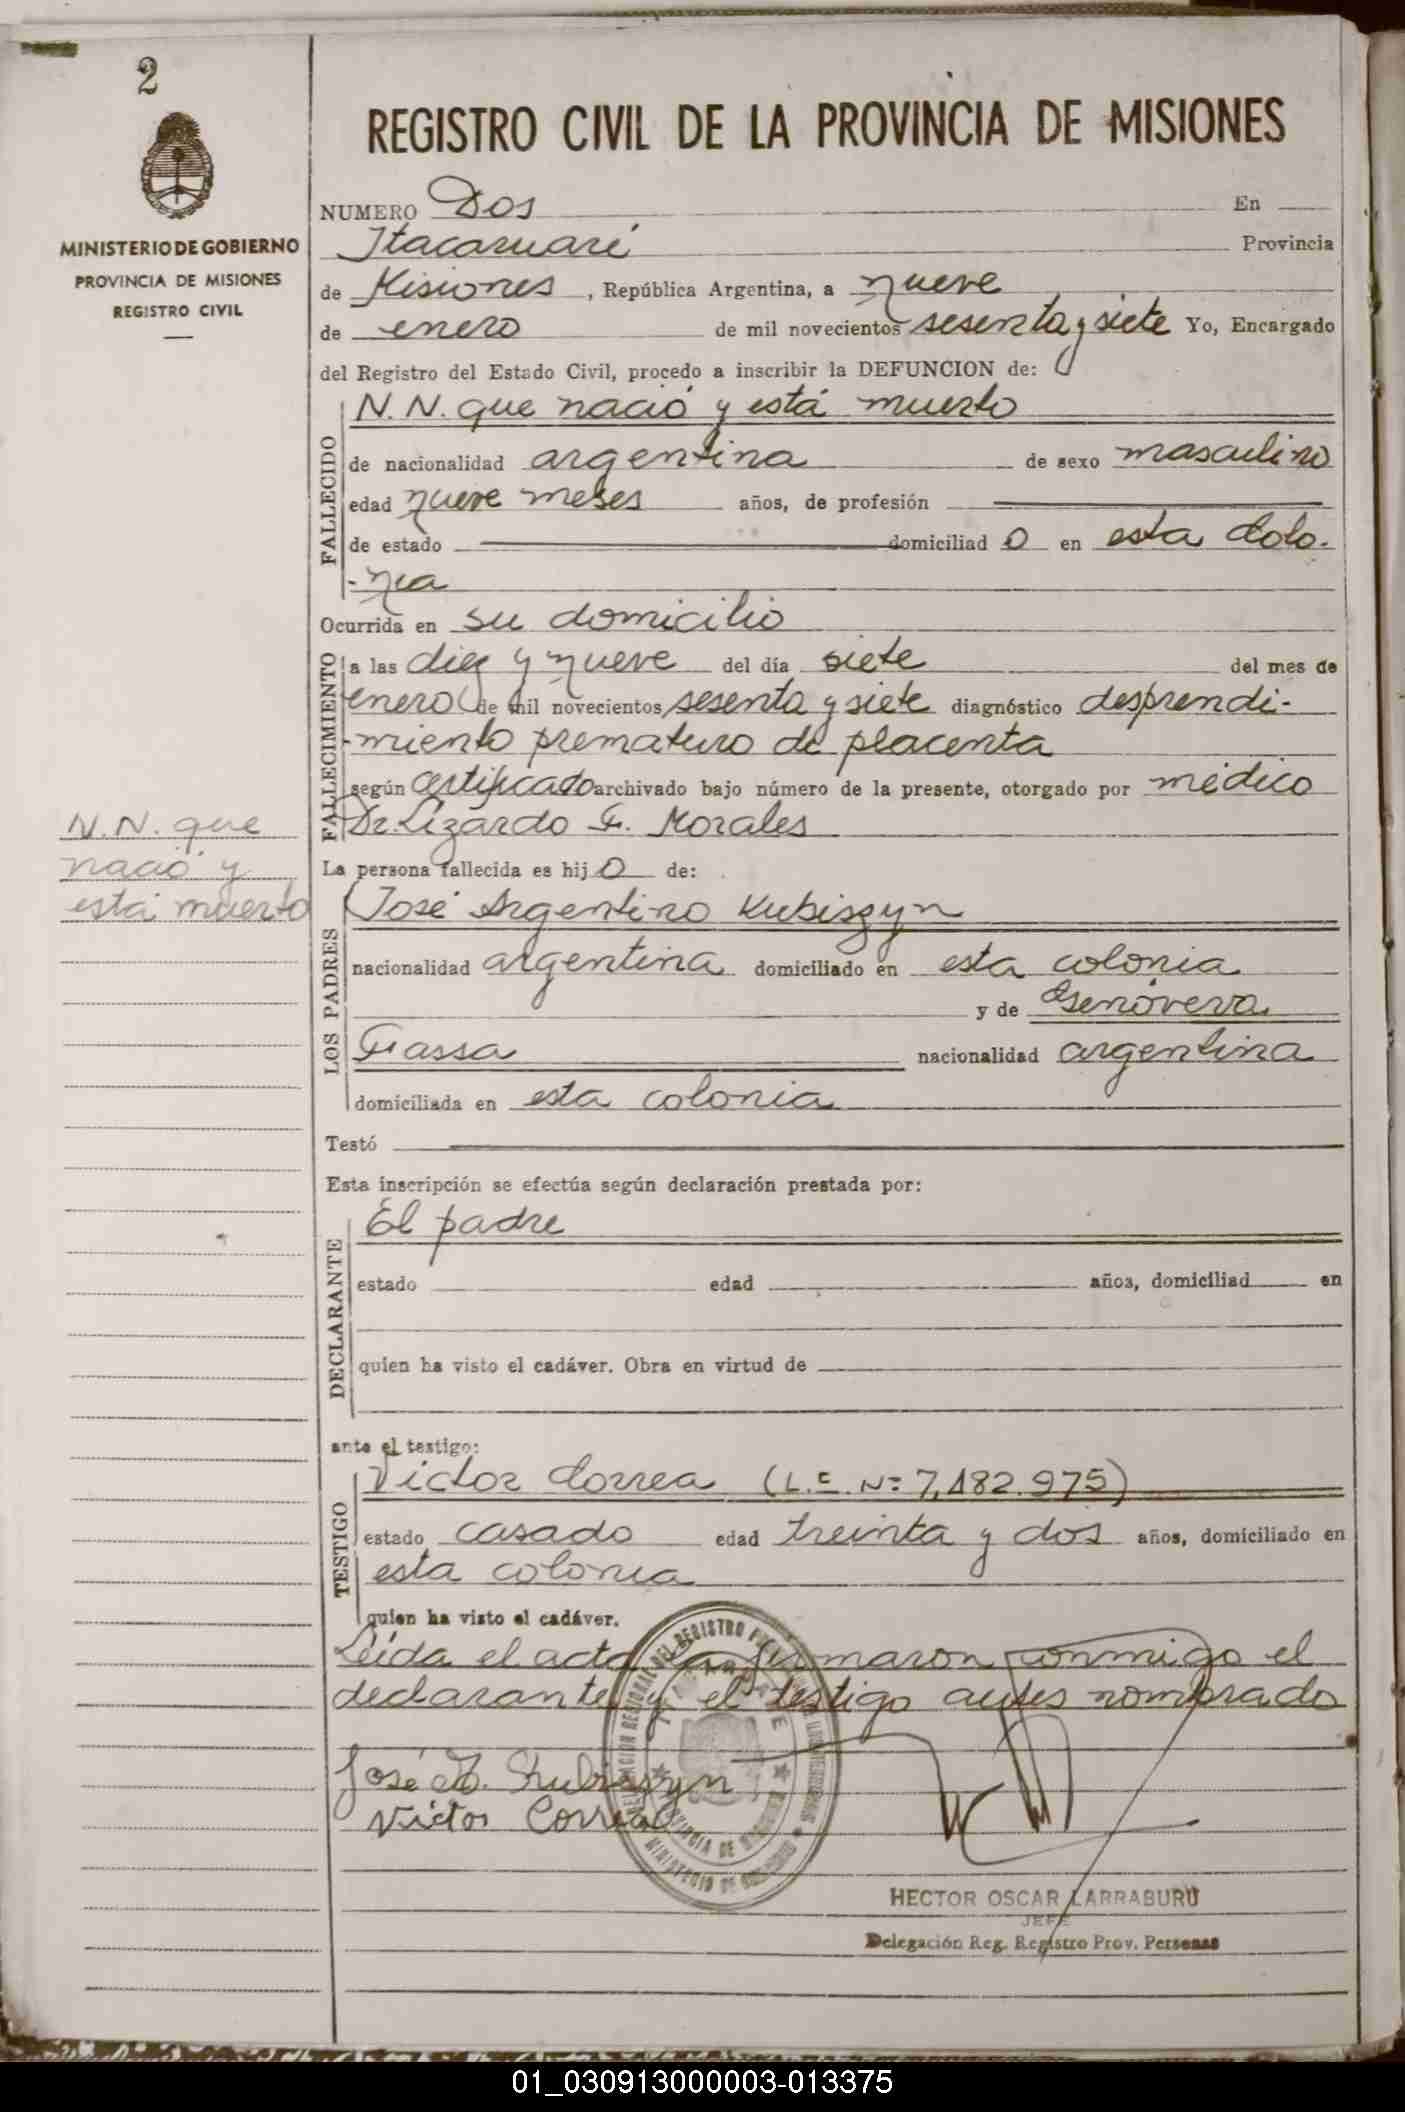 2
MINISTERIO DE GOBIERNO
PROVINCIA DE MISIONES
REGISTRO CIVIL
REGISTRO CIVIL DE LA PROVINCIA DE MISIONES
NUMERO Dos En
Itacaruaré Provincia
de Misiones , República Argentina, a nueve
de enero de mil novecientos sesenta y siete Yo, Encargado
del Registro del Estado Civil, procedo a inscribir la DEFUNCION de:
FALLECIDO
N.N. que nació y está muerto
de nacionalidad argentina de sexo masculino
edad nueve meses años, de profesión
de estado domiciliad o en esta Colo-
-nia
Ocurrida en su domicilio
FALLECIMIENTO
a las diez y nueve del día siete del mes de
enero de mil novecientos sesenta y siete diagnóstico desprendi-
-miento prematuro de placenta
según certificado archivado bajo número de la presente, otorgado por médico
Dr. Lizardo F. Morales
N.N. que
nació y
está muerto
La persona fallecida es hij o de:
LOS PADRES
José Argentino Kubiszyn
nacionalidad argentina domiciliado en esta colonia
y de Genoveva
Fassa nacionalidad argentina
domiciliada en esta colonia
Testó
Esta inscripción se efectúa según declaración prestada por:
DECLARANTE
El padre
estado edad años, domiciliad en
quien ha visto el cadáver. Obra en virtud de
ante el testigo:
TESTIGO
Victor Correa (L.E. Nº 7.482.975)
estado casado edad treinta y dos años, domiciliado en
esta colonia
quien ha visto el cadáver.
Leída el acta la firmaron conmigo el
declarante y el testigo antes nombrado
José A. Kubiszyn
Victor Correa
HECTOR OSCAR LARRABURU
JEFE
Delegación Reg. Registro Prov. Personas
01_030913000003-013375